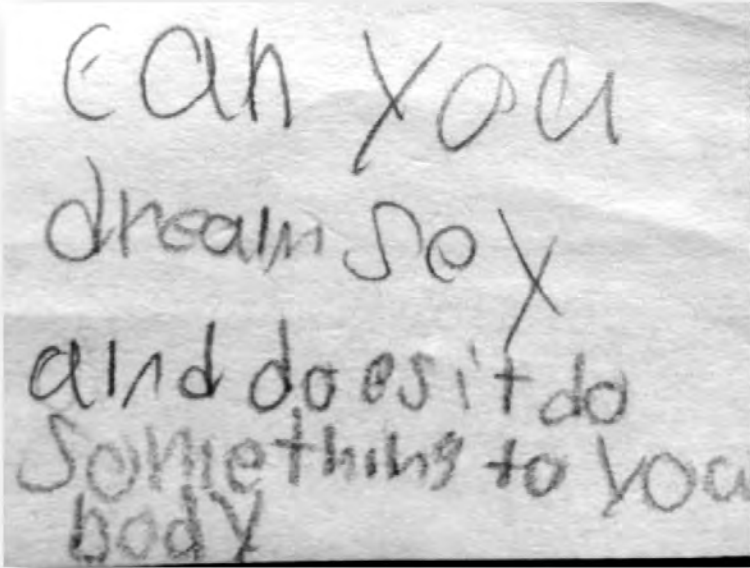 can you
dream sex
and does it do
something to you
body